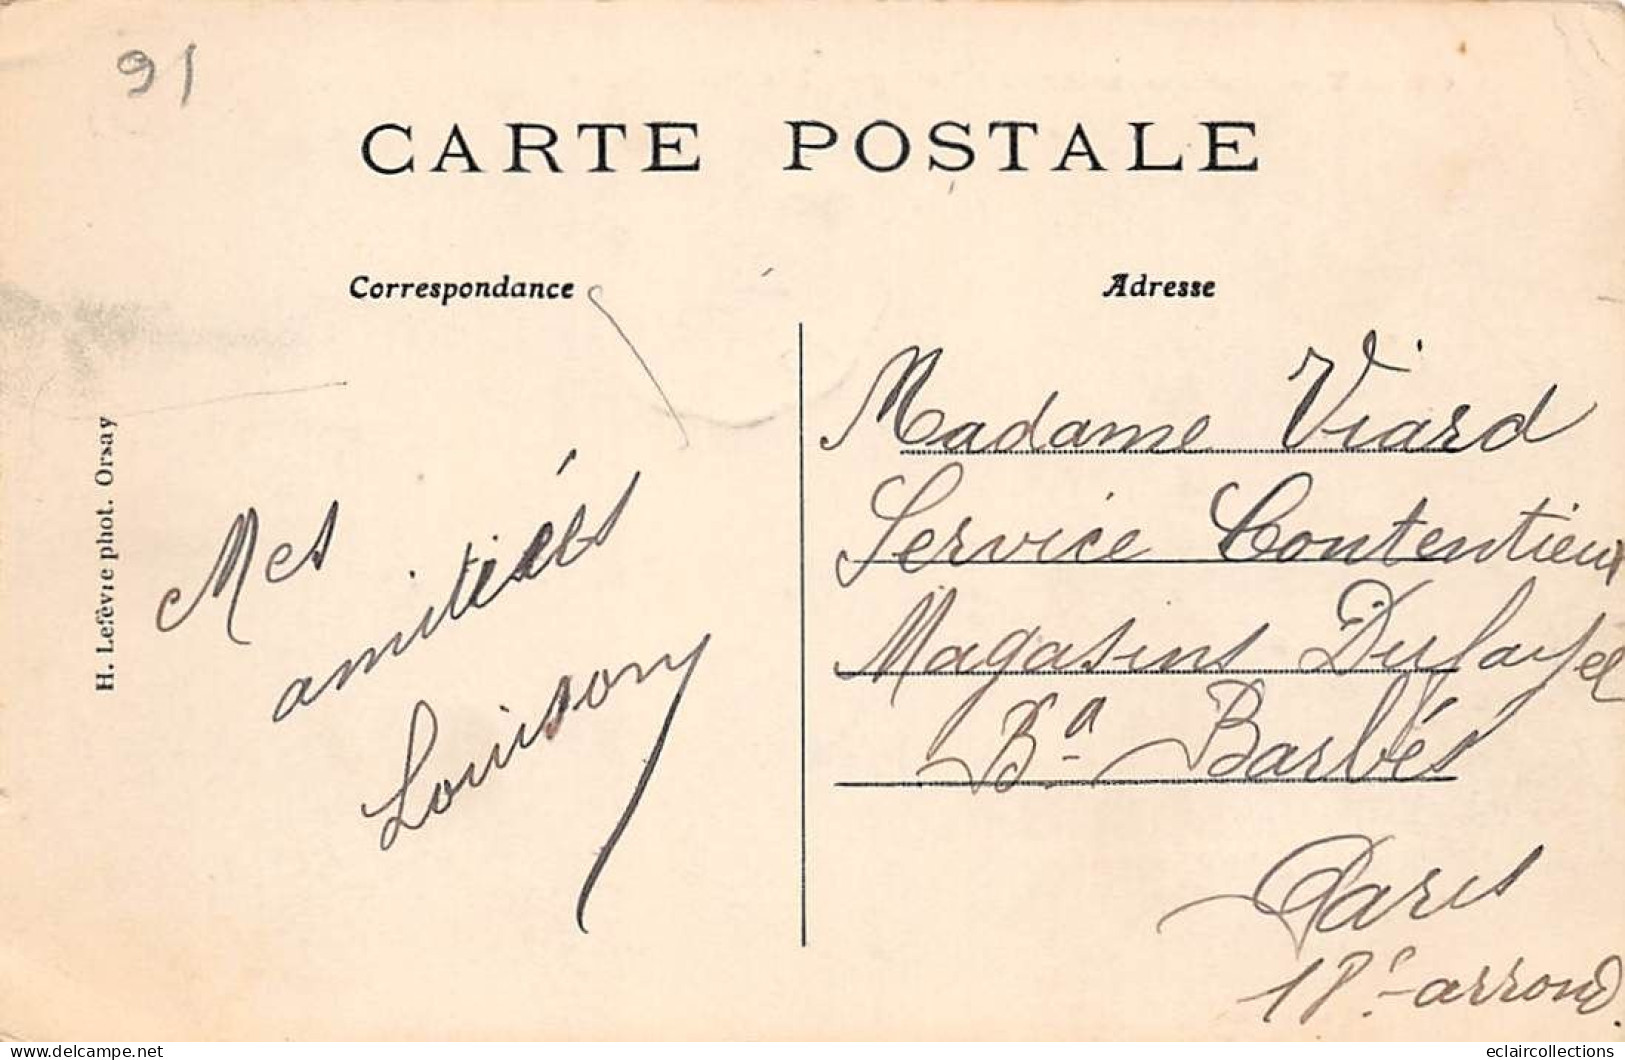 91
CARTE POSTALE
Correspondance
Adresse
H. Lefèvre phot. Orsay
Mes
amitiés
Louison
Madame Viard
Service Contentieux
Magasins Dufayel
Bd Barbés
Paris
18e arrond.
eclaircollections